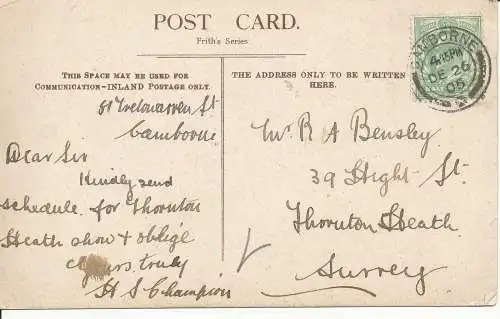 POST CARD.
Frith's Series
THIS SPACE MAY BE USED FOR
COMMUNICATION—INLAND POSTAGE ONLY.
THE ADDRESS ONLY TO BE WRITTEN
HERE.
CAMBORNE
4.15PM
DE 26
05
81 Trelowarren St
Camborne
Dear Sir
Kindly send
schedule for Thornton
Heath show & oblige
Yours truly
H S Champion
Mr R A Bensley
39 High St
Thornton Heath
Surrey